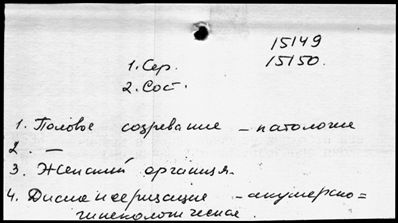 15149
15150.
1. Сер.
2. Сост.
1. Половое созревание – патология
2. —
3. Женский организм.
4. Диспансеризация – акушерско=
гинекологическое.